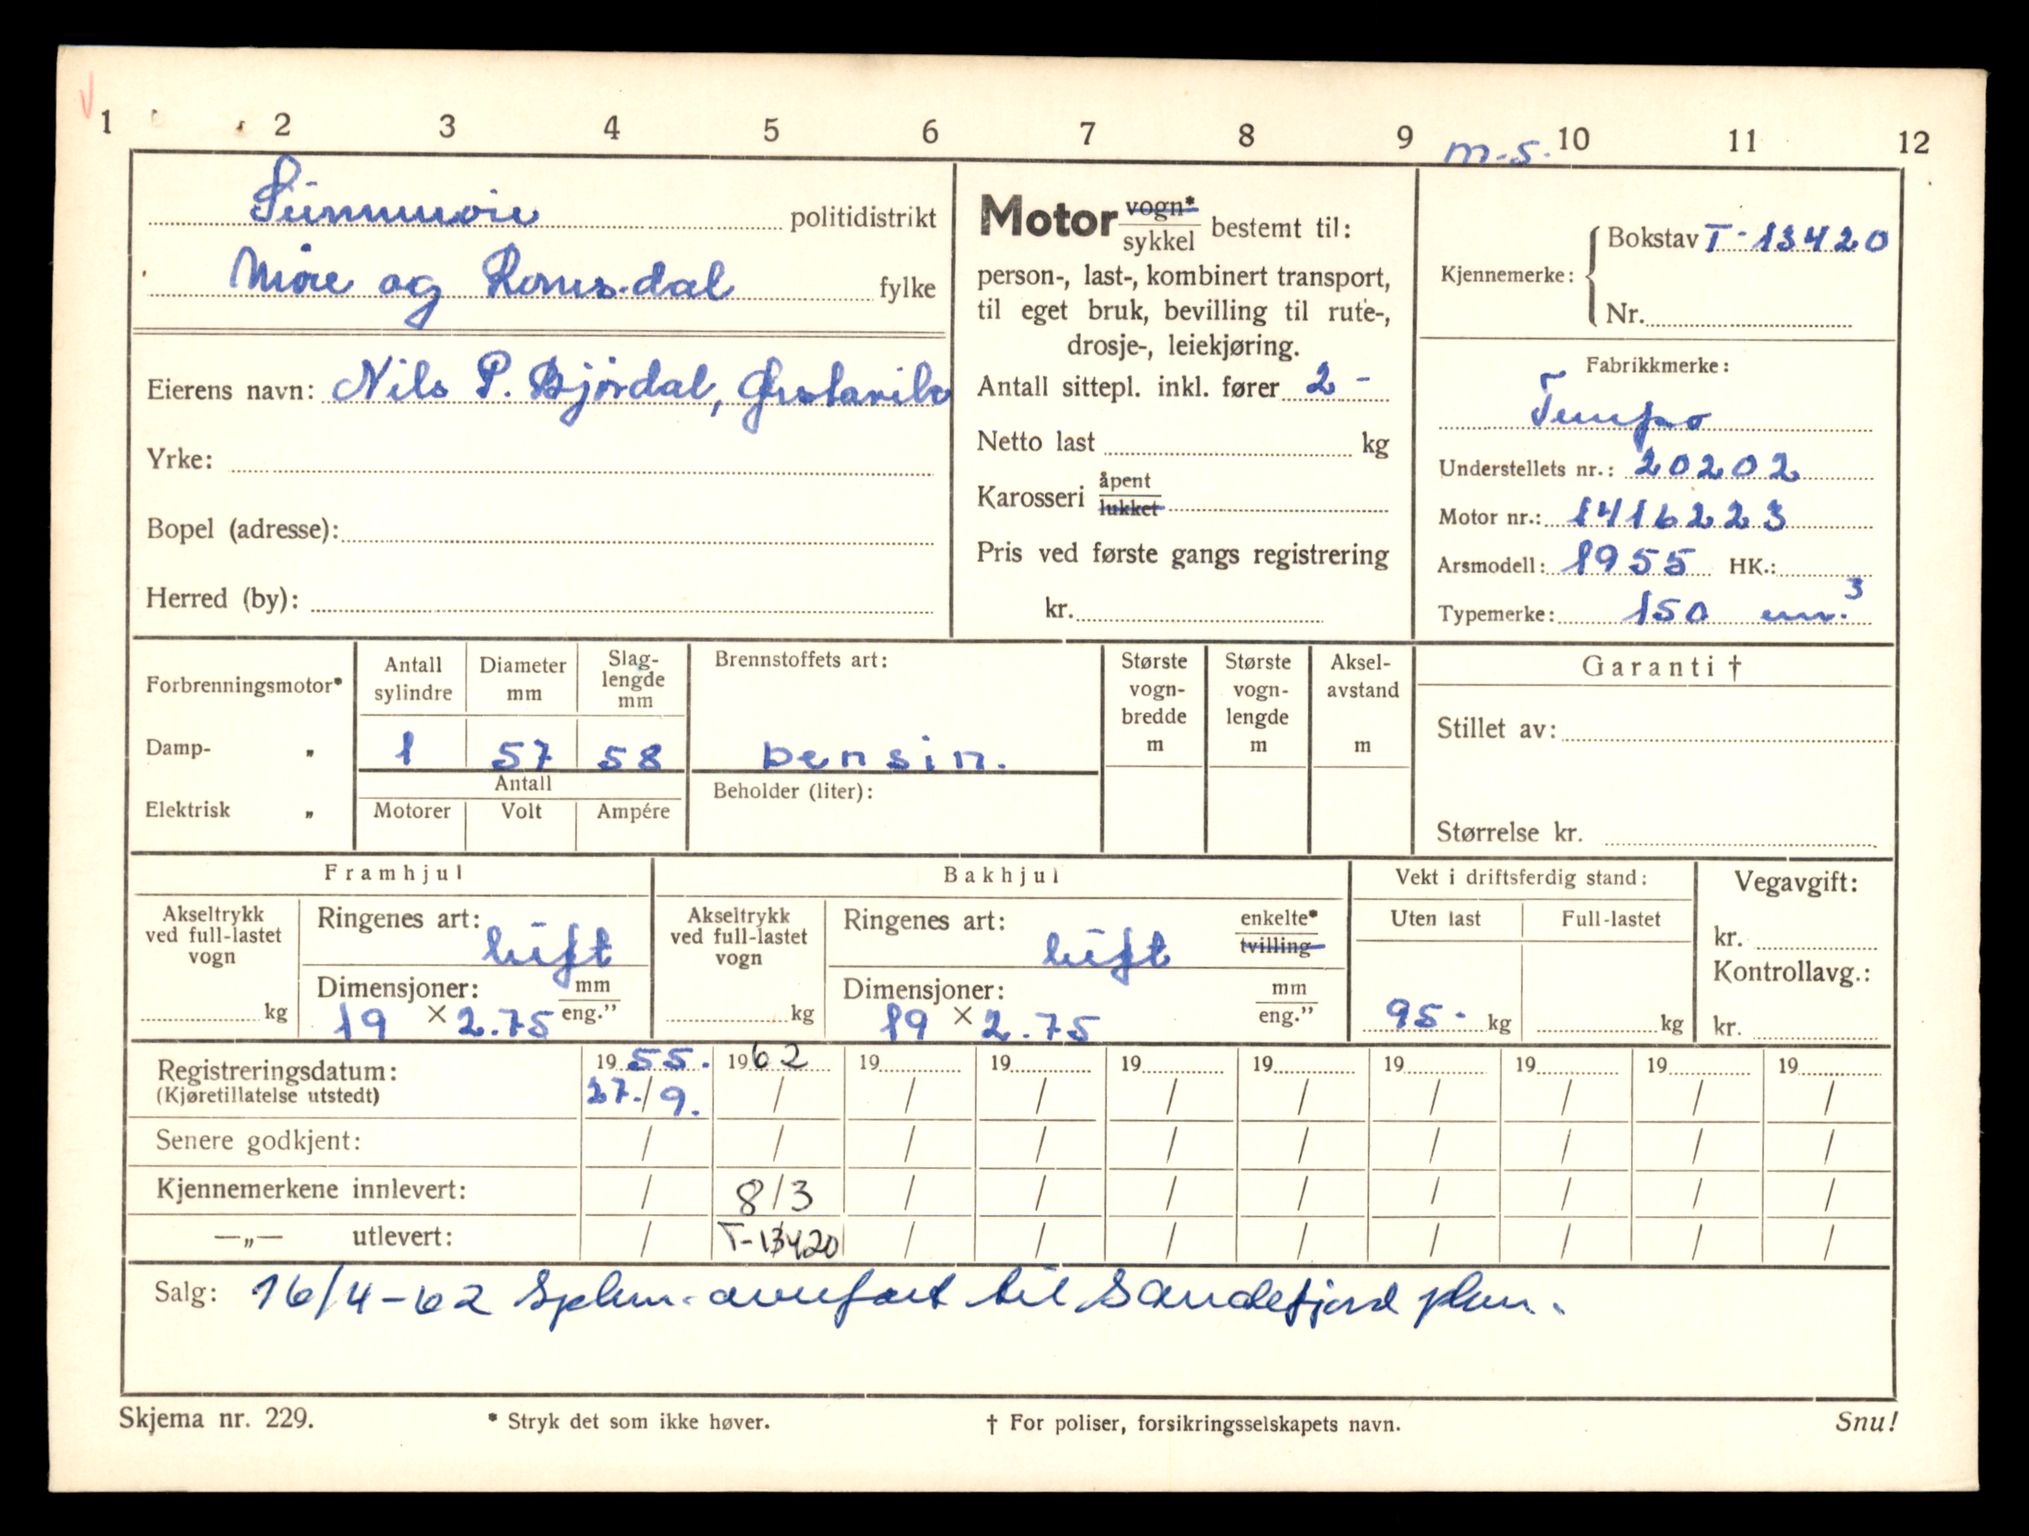 1 2 3 4 5 6 7 8 9 10 11 12
m.s.
Sunnmøre politidistrikt
Møre og Romsdal fylke
Eierens navn: Nils P. Bjørdal, Ørstavik
Yrke:
Bopel (adresse):
Herred (by):
Motor vogn* / sykkel bestemt til:
person-, last-, kombinert transport,
til eget bruk, bevilling til rute-,
drosje-, leiekjøring.
Antall sittepl. inkl. fører 2 -
Netto last kg
Karosseri åpent / lukket
Pris ved første gangs registrering
kr.
Kjennemerke: Bokstav T-13420
Nr.
Fabrikkmerke:
Tempo
Understellets nr.: 20202
Motor nr.: 1416223
Arsmodell: 1955 HK.:
Typemerke: 150 cm.³
Forbrenningsmotor*
Damp- „
Elektrisk „
Antall sylindre 1
Diameter mm 57
Slag-lengde mm 58
Antall
Motorer Volt Ampére
Brennstoffets art:
bensin.
Beholder (liter):
Største vogn-bredde m
Største vogn-lengde m
Aksel-avstand m
Garanti †
Stillet av:
Størrelse kr.
Framhjul
Akseltrykk ved full-lastet vogn
kg
Ringenes art: luft
Dimensjoner: mm / eng.”
19 × 2.75
Bakhjul
Akseltrykk ved full-lastet vogn
kg
Ringenes art: luft enkelte* / tvilling
Dimensjoner: mm / eng.”
19 × 2.75
Vekt i driftsferdig stand:
Uten last Full-lastet
95.- kg kg
Vegavgift:
kr.
Kontrollavg.:
kr.
Registreringsdatum: 1955. 1962 19 19 19 19 19 19 19 19
(Kjøretillatelse utstedt) 27./9. / / / / / / / / /
Senere godkjent: / / / / / / / / / /
Kjennemerkene innlevert: / 8/3 / / / / / / / /
—„— utlevert: / T-13420 / / / / / / / /
Salg: 16/4-62 overført til Sandefjord
Skjema nr. 229. * Stryk det som ikke høver. † For poliser, forsikringsselskapets navn. Snu!